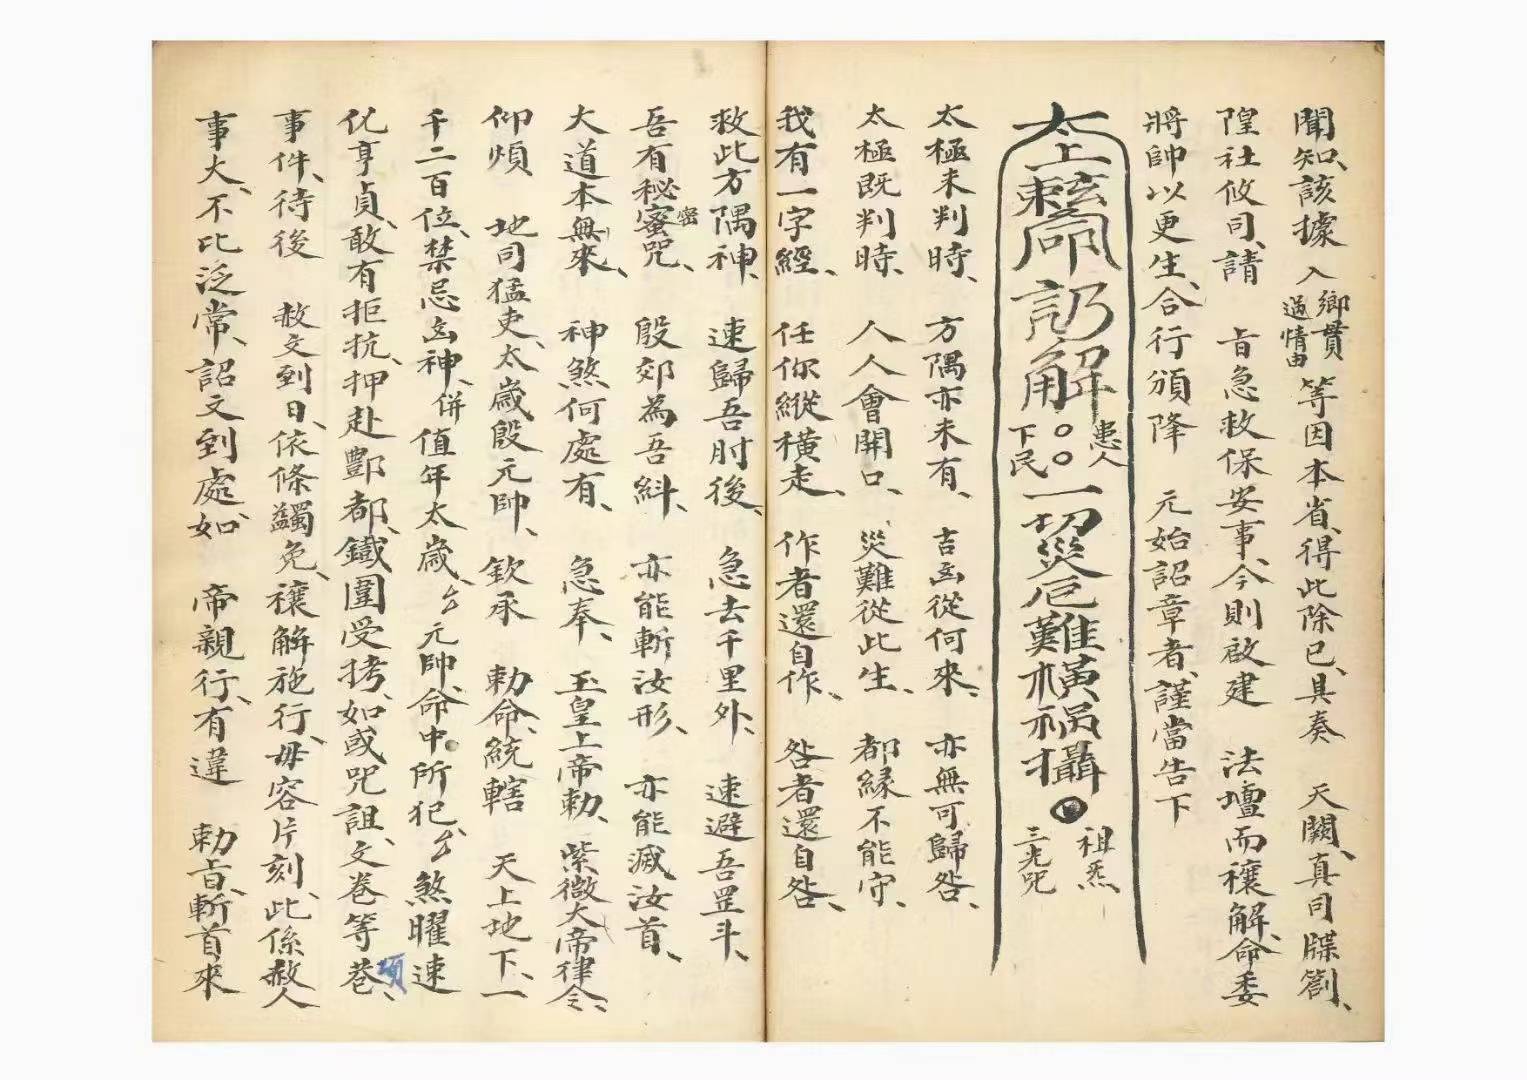 聞知、該據入鄉貫過情由等因本省、得此除已、具奏 天闕、真司牒劄、
隍社攸司、請 旨急救保安事、今則啟建 法壇而禳解、命委
將帥以更生、合行頒降 元始詔章者、謹當告下
太上敕命 解患人下民○○一切災厄難橫禍攝 祖炁三光咒
太極未判時、 方隅亦未有、 吉凶從何來、 亦無可歸咎、
太極既判時、 人人會開口、 災難從此生、 都緣不能守、
我有一字經、 任你縱橫走、 作者還自作、 咎者還自咎、
救此方隅神、 速歸吾肘後、 急去千里外、 速避吾罡斗、
吾有秘蜜密咒、 殷郊為吾糾、 亦能斬汝形、 亦能滅汝首、
大道本無來、 神煞何處有、 急奉、 玉皇上帝勅、紫微大帝律令、
仰煩 地司猛吏、太歲殷元帥、 欽承 勅命、統轄 天上地下、一
千二百位、禁忌凶神、併值年太歲、 元帥命中所犯 煞曜速
化亨貞、敢有拒抗、押赴酆都、鐵圍受拷、如或咒詛、文卷等巷項、
事件、待後 赦文到日、依條蠲免、禳解施行、毋容片刻、此係赦人
事大、不比泛常、詔文到處、如 帝親行、有違 勅旨、斬首來